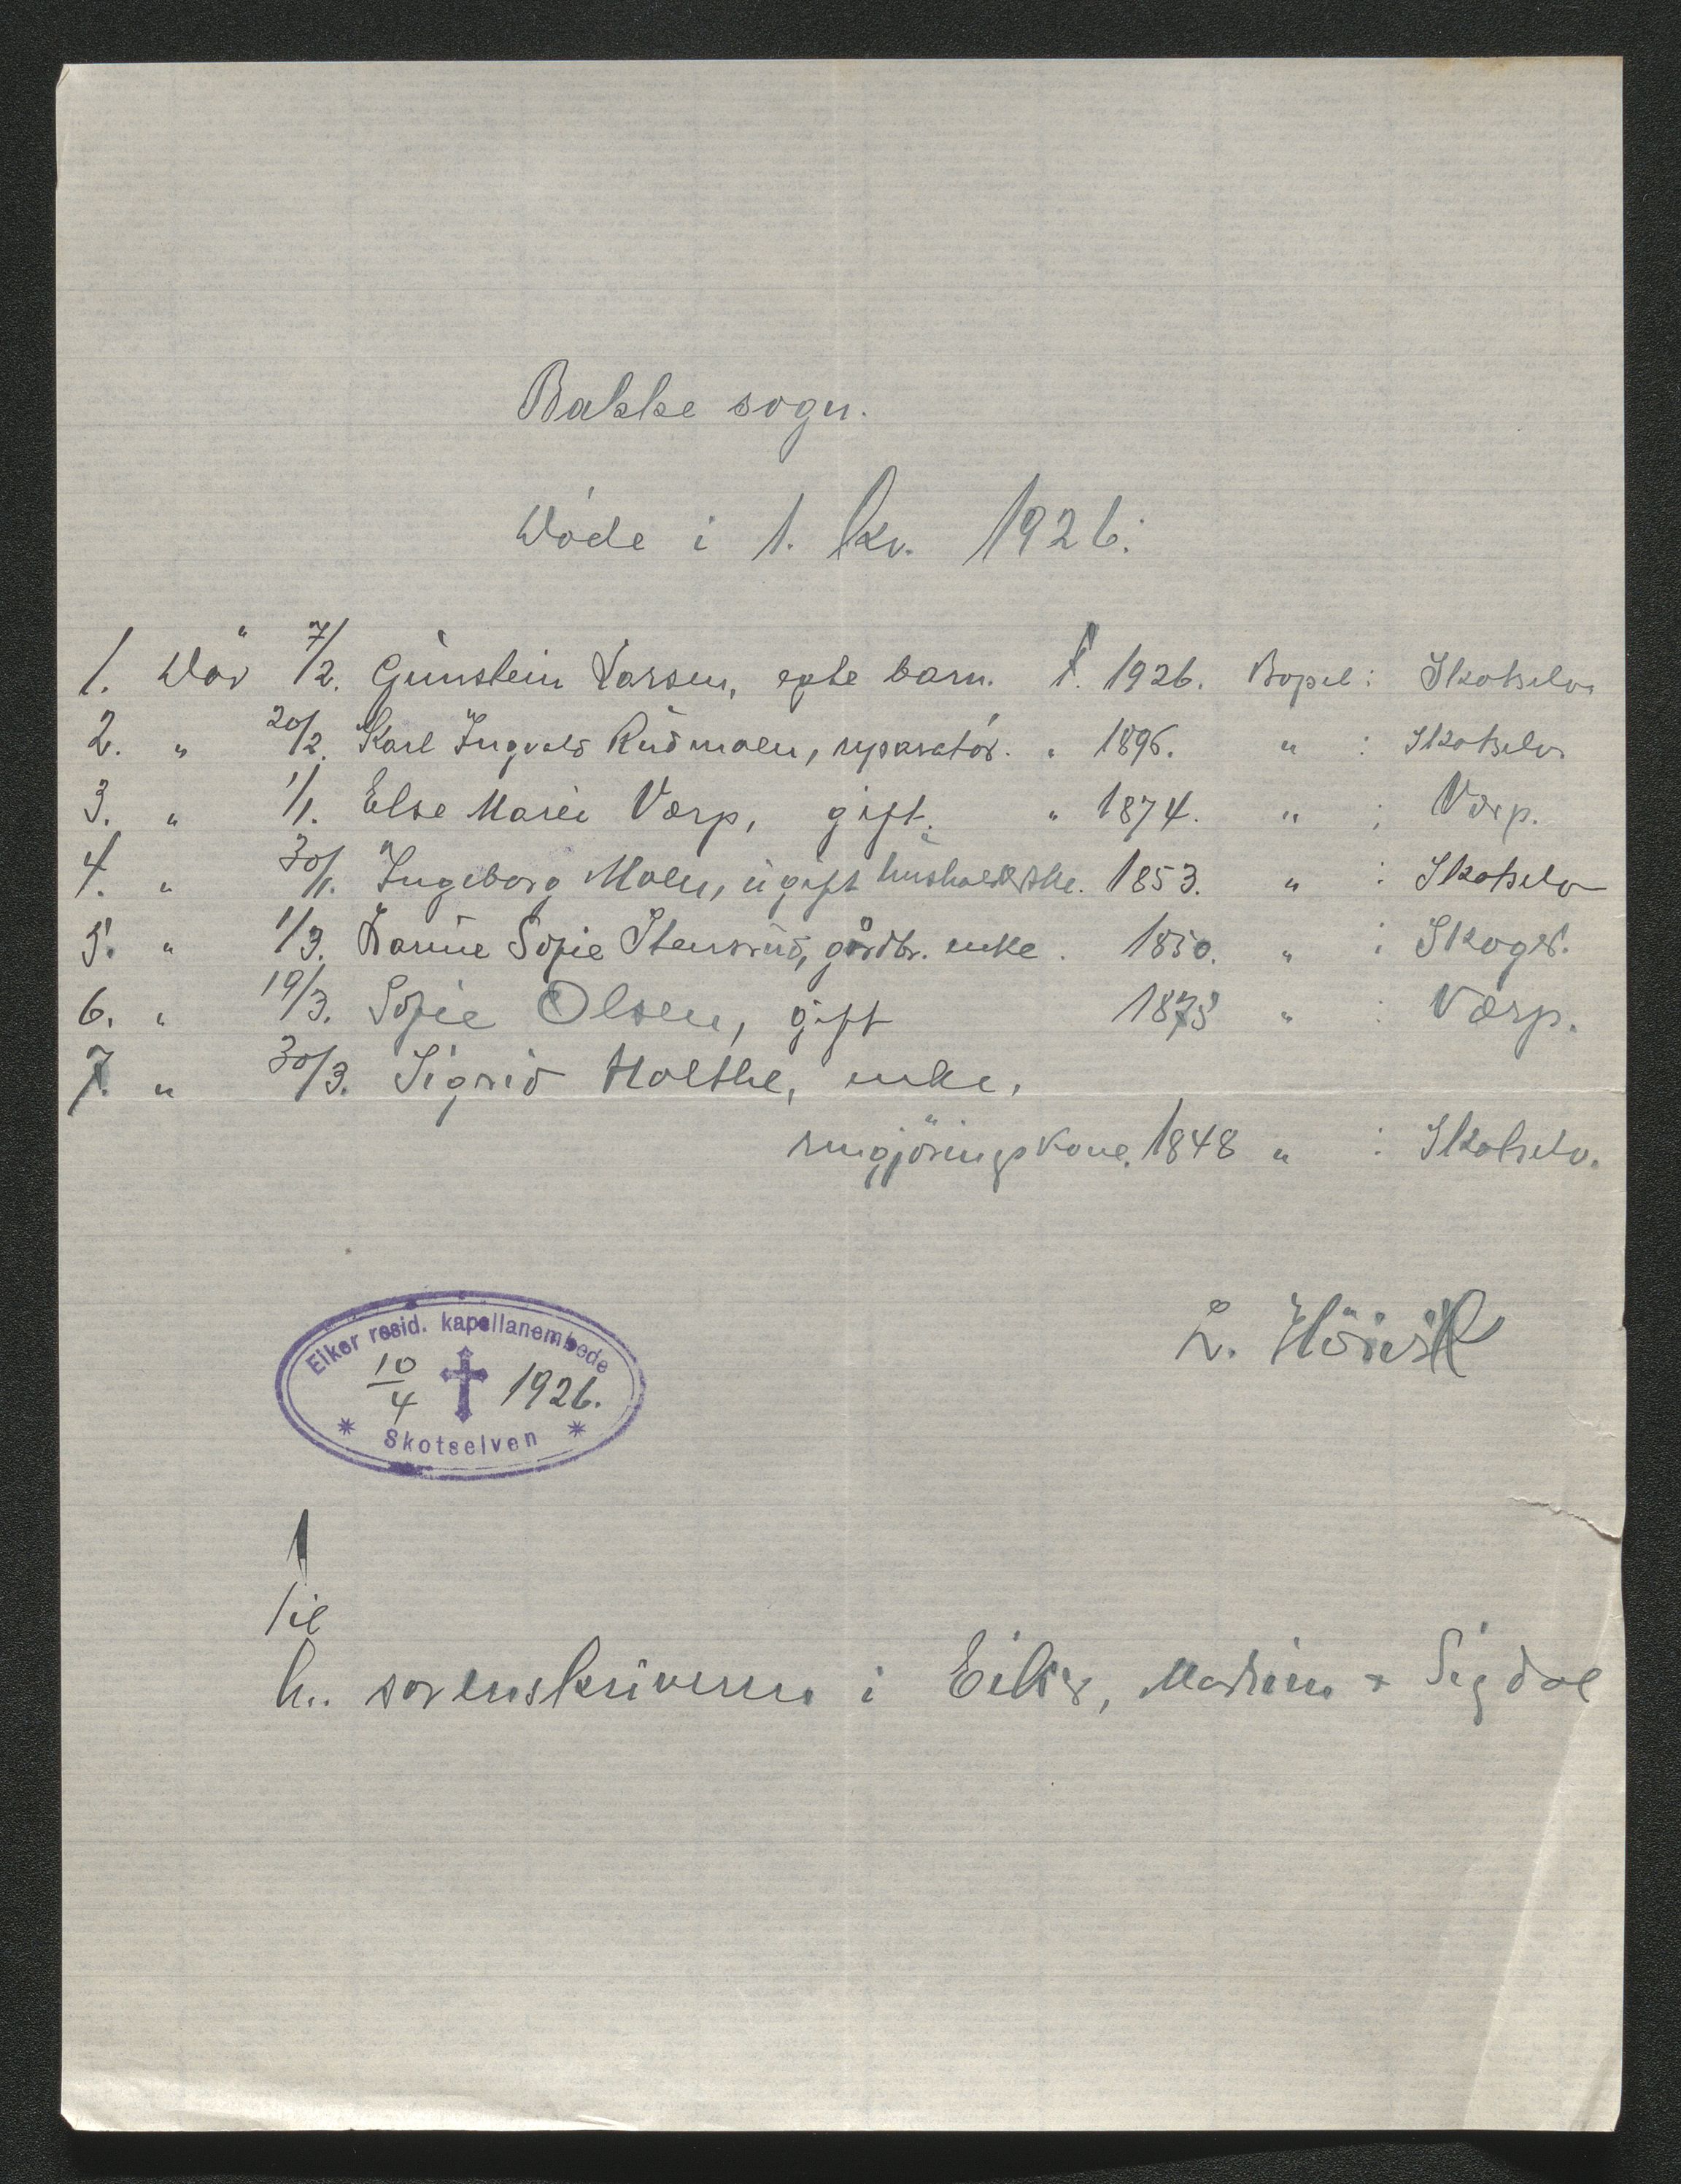 Bakke sogn.
Døde i 1. kv. 1926.
1. Død 7/2. Gunstein Larsen, egte barn. f. 1926. Bopel: Skotselv.
2. " 20/2. Karl Ingvald Rudmoen, reparatør. " 1896. " : Skotselv.
3. " 1/1. Else Marie Værp, gift. " 1874. " : Værp.
4. " 30/1. Ingeborg Moen, ugift husholderske. 1853. " : Skotselv
5. " 1/3. Karine Sofie Stensrud, gårdbr. enke. 1850. " :
6. " 19/3. Sofie Olsen, gift 1873 " : Værp.
7. " 30/3. Sigrid Holthe, enke,
rengjøringskone. 1848 " : Skotselv.
L.
Eiker resid. kapellanembede
10/4 1926.
* Skotselven *
Til
hr. sorenskriveren i Eiker, Modum & Sigdal